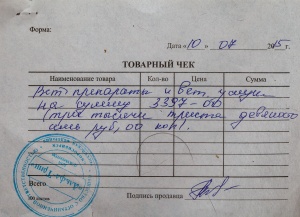 Форма:
Дата «10» 07 2015г.
ТОВАРНЫЙ ЧЕК
Наименование товара Кол-во Цена Сумма
Вет. препараты и вет. услуги
на сумму 3397-00
(три тысячи триста девяносто
семь руб, 00 коп).
Всего
Подпись продавца